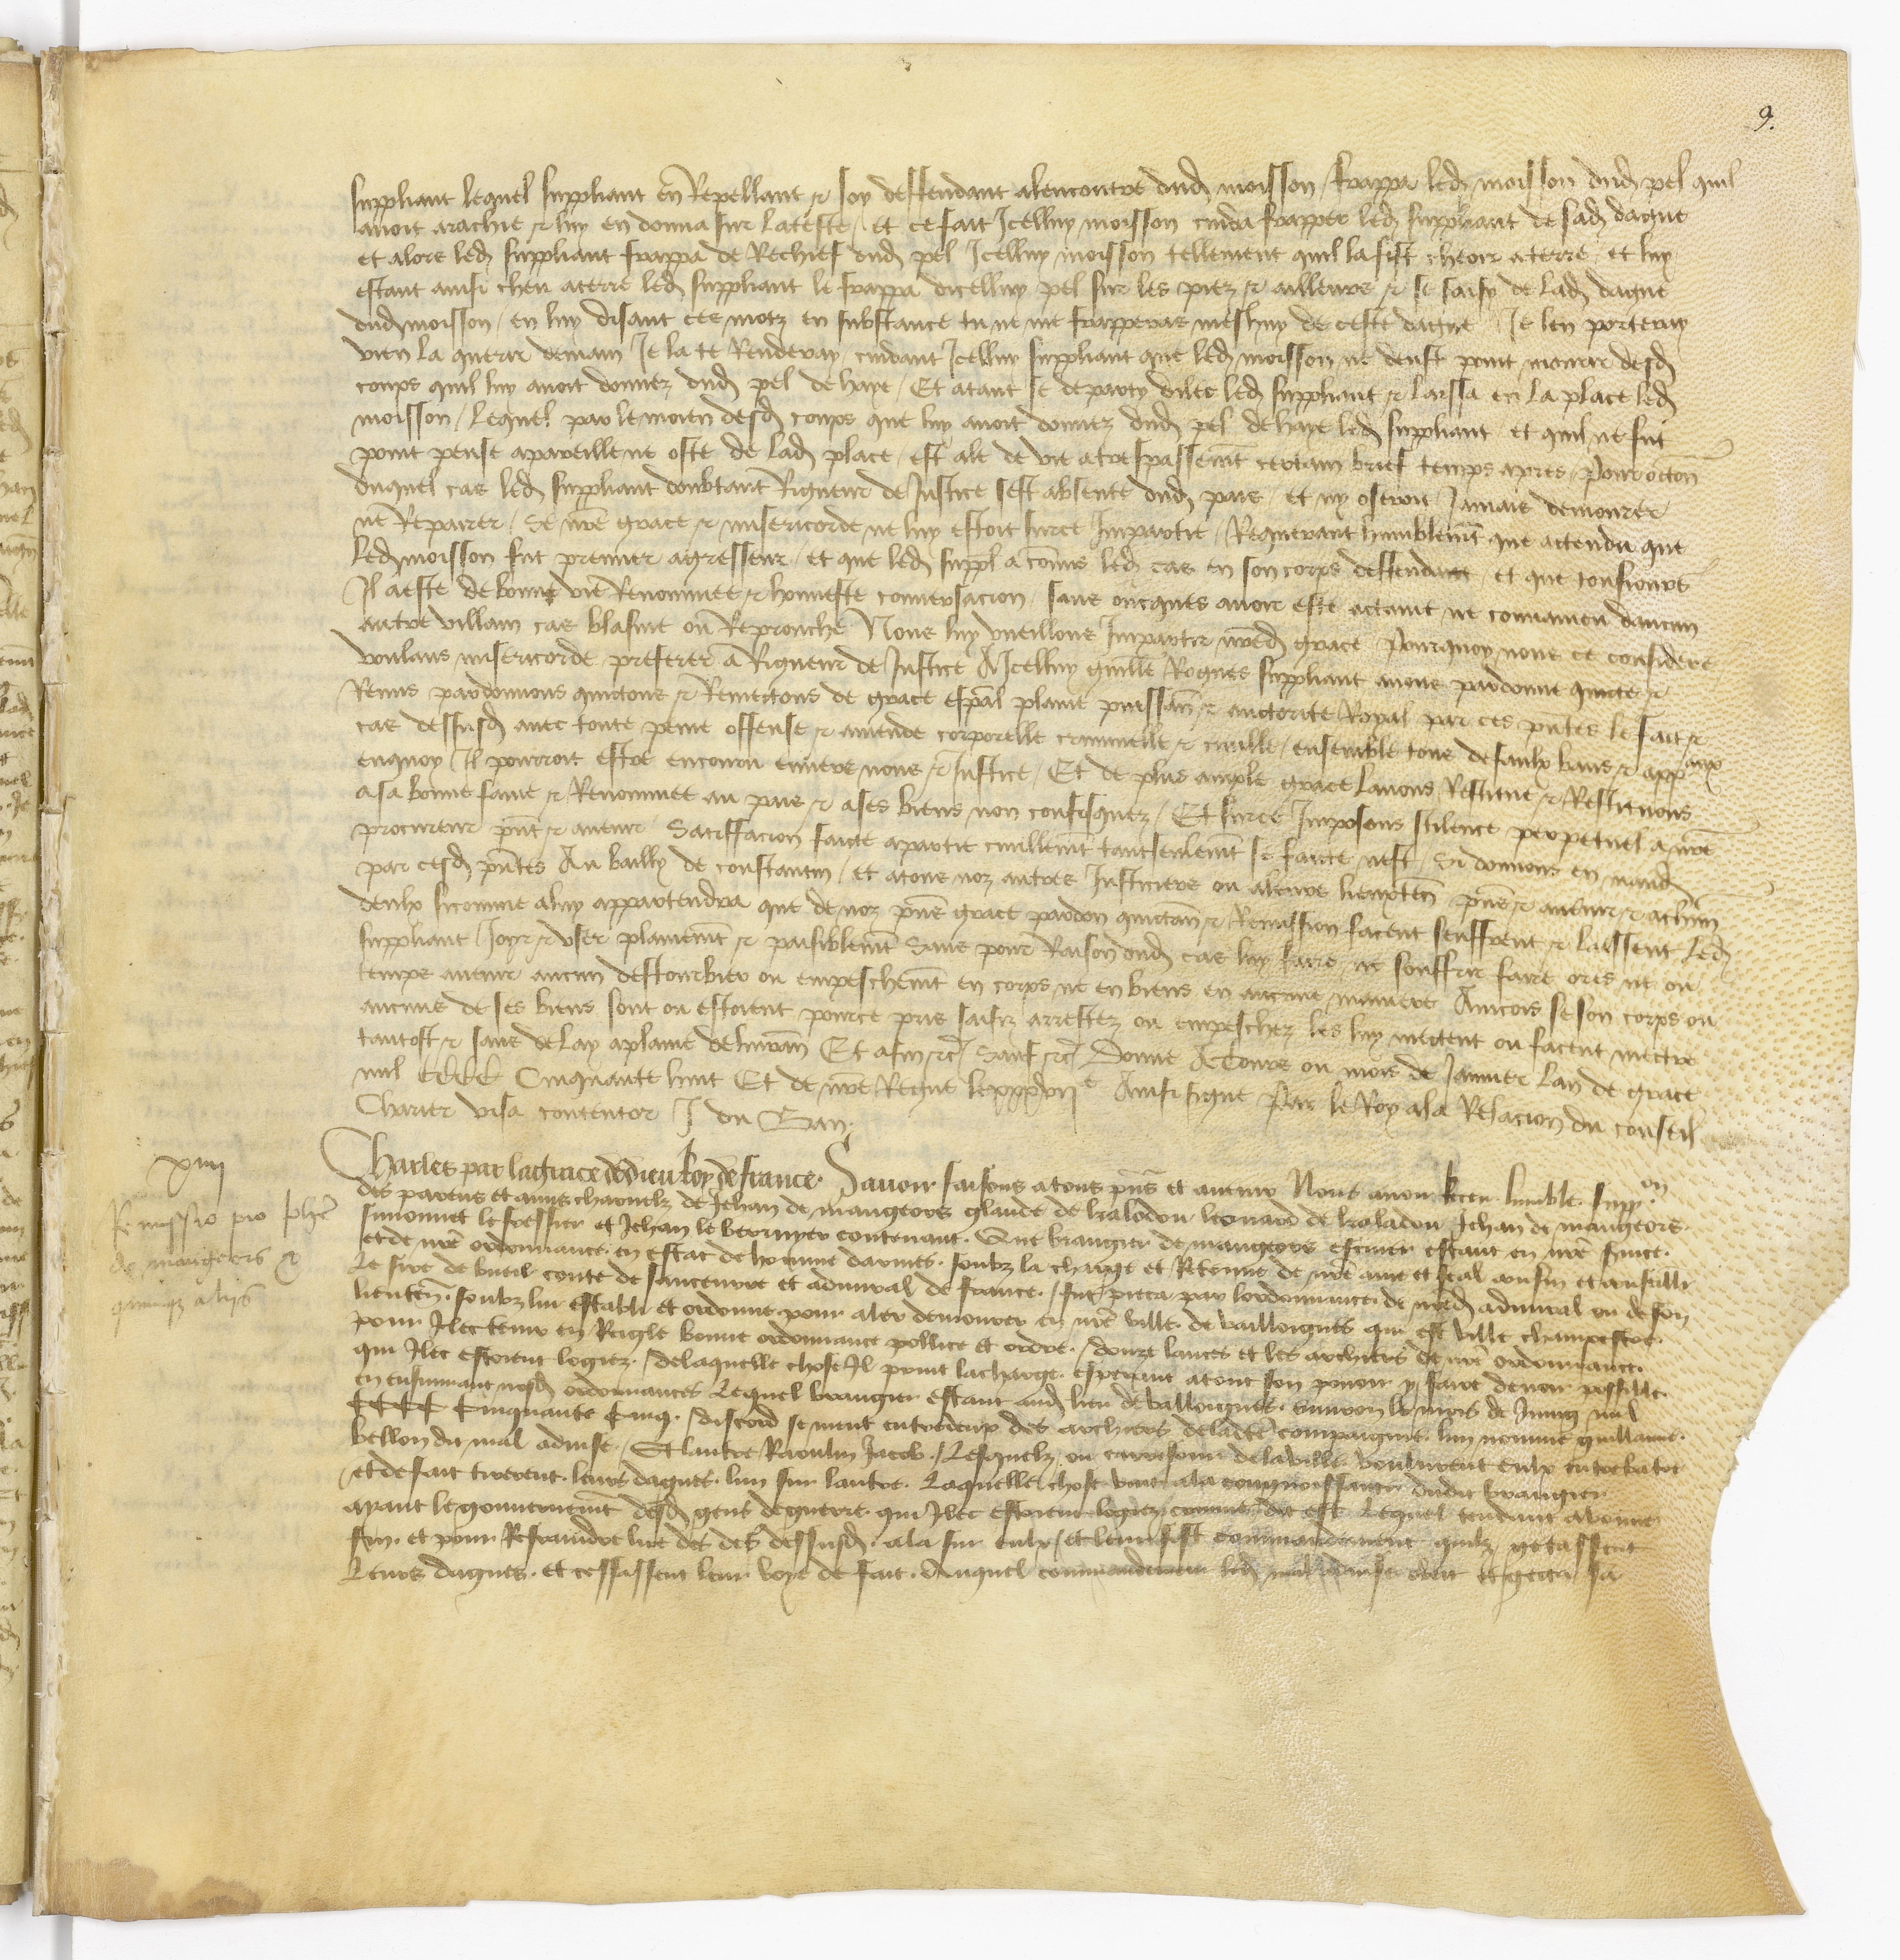 9.
suppliant lequel suppliant en Repellant et soy deffendant alencontre dud moisson / frappa led moisson dud pel quil
avoit arachie et luy en donna sur lateste / et ce fait Icelluy moisson cuida frapper led suppliant de sad dague
et alors led suppliant frappa de Rechief dud pel Icelluy moisson tellement quil la fist cheoir aterre / et luy
estant ainsi cheu aterre led suppliant le frappa dicelluy pel sur les piez et ailleurs et se saisy de lad dague
dud moisson / en luy disant ces motz en substance tu ne me frapperas meshuy de ceste dague / Je len porteray
vien la querir demain Je la te Renderay / cuidant Icelluy suppliant que led moisson ne deust point mourir desd
coups quil luy avoit donnez dud pel de haye / Et atant se departy dilec led suppliant et laissa en la place led
moisson / lequel par le moien desd coups que luy avoit donnez dud pel de haye led suppliant / et quil ne fut
point pense apareille ne oste de lad place / est ale de vie atrespassemt certain brief temps apres / Pour occon
duquel cas led suppliant doubtant Rigueur de Justice sest absente dud pais / et ny oseroit Jamais demourer
ne Repairer / Se nre grace et misericorde ne luy estoit surce Impartie / Requerant humblemt que actendu que
led moisson fut premier agresseur / et que led suppl a comis led cas en son corps deffendant / et que tousjours
Il a este de bonne vie Renommee et honneste conversacion / sans oncques avoir este actaint ne convaincu daucun
autre villain cas blasme ou Reprouche Nous luy vueillons Impartir nred grace Pourquoy nous ce considere
voulans misericorde preferer a Rigueur de Justice A Icelluy guille Rogues suppliant avons pardonne quicte et
Remis pardonnons quictons et Remectons de grace espal plaine puissan et auctorite Royal par ces pntes le fait et
cas dessusd avec toute peine offense et amende corporelle criminelle et civille / ensemble tous defaulx bans et appaulx
enquoy Il pourroit estre encouru envers nous et Justice / Et de plus ample grace lavons Restitue et Restituons
a sa bonne fame et Renommee au pais et a ses biens non confisquez / Et surce Imposons silence perpetuel a nre
procureur pnt et avenir Satisfacion faicte apartie civillemt tantseulemt se faicte nest / Si donnons en mand
par cesd pntes Au bailly de constantin / et atous noz autres Justiciers ou aleurs lieuxten pns et avenir et achun
deulx sicomme aluy appartendra que de noz pns grace pardon quictan et Remission facent seuffrent et laissent led
suppliant Joyr et user plainemt et paisiblemt Sans pour Raison dud cas luy faire ne souffrir faire ores ne ou
temps avenir aucun destourbier ou empeschemt en corps ne en biens en aucune maniere Aincois se son corps ou
aucuns de ses biens sont ou estoient pource pris saisiz arrestez ou empeschez les luy mectent ou facent mectre
tantost et sans delay aplaine delivran Et afin etc Sauf etc Donne A Tours ou mois de Janvier Lan de grace
mil CCCC Cinquante huit Et de nre Regne le xxxvije Ainsi signe Par le Roy ala Relacion du conseil
Charier visa contentor J du Ban
xiiij
Remissio pro Johe
de maugeors et
quinq aliis
Charles par la grace de dieu Roy de france. Savoir faisons atous pns et avenir Nous avon Receu lumble suppon
des parens et amis charnelz de Jehan de maugeors glaude de kaladon leonard de kaladon Jehan de maugeors
simonnet le fessier et Jehan le berruyer contenant. Que brangier de maugeors escuier estant en nre svice.
et de nre ordonnance en estat de homme darmes. soubz la charge et Retenue de nre ame et feal cousin et conseillr
Le sire de bueil conte de sancerre et admiral de france. / fut pieca par lordonnance de nred admiral ou de son
lieuten. soubz lui establi et ordonne pour aler demourer en nre ville de vailloignes qui est ville champestre.
pour Ilec tenir en Reigle bonne ordonnance pollice et ordre. / douze lances et les archiers de nre ordonnance.
qui Ilec estoient logiez. / delaquelle chose Il print la charge. esperant a tout son povoir y faire devoir possible.
en ensuivant nosd ordonnances Lequel brangier estant aud lieu de valloignes. environ le mois de Juing mil
CCCC Cinquante Cinq. / discord se meut entredeux des archiers deladicte compaignie. lun nomme guillaume.
bellon dit mal advise. / Et lautre Raoulin Jacob. / Lesquelz ou carrefour de la ville voulurent eulx entrebatre
et de fait tirerent leurs dagues. lun sur lautre. Laquelle chose vint ala congnoissance dudit brangier
ayant le gouvernemt desd gens de guerre. qui Ilec estoient logiez comme dit est Lequel tendant abonne
fin. et pour Refraindre lire des des dessusd. ala sur eulx / et leur fist commandement quilz getassent
Leurs dagues. et cessassent leur voye de fait. Auquel commandement led mal advise obeit et gecta sa